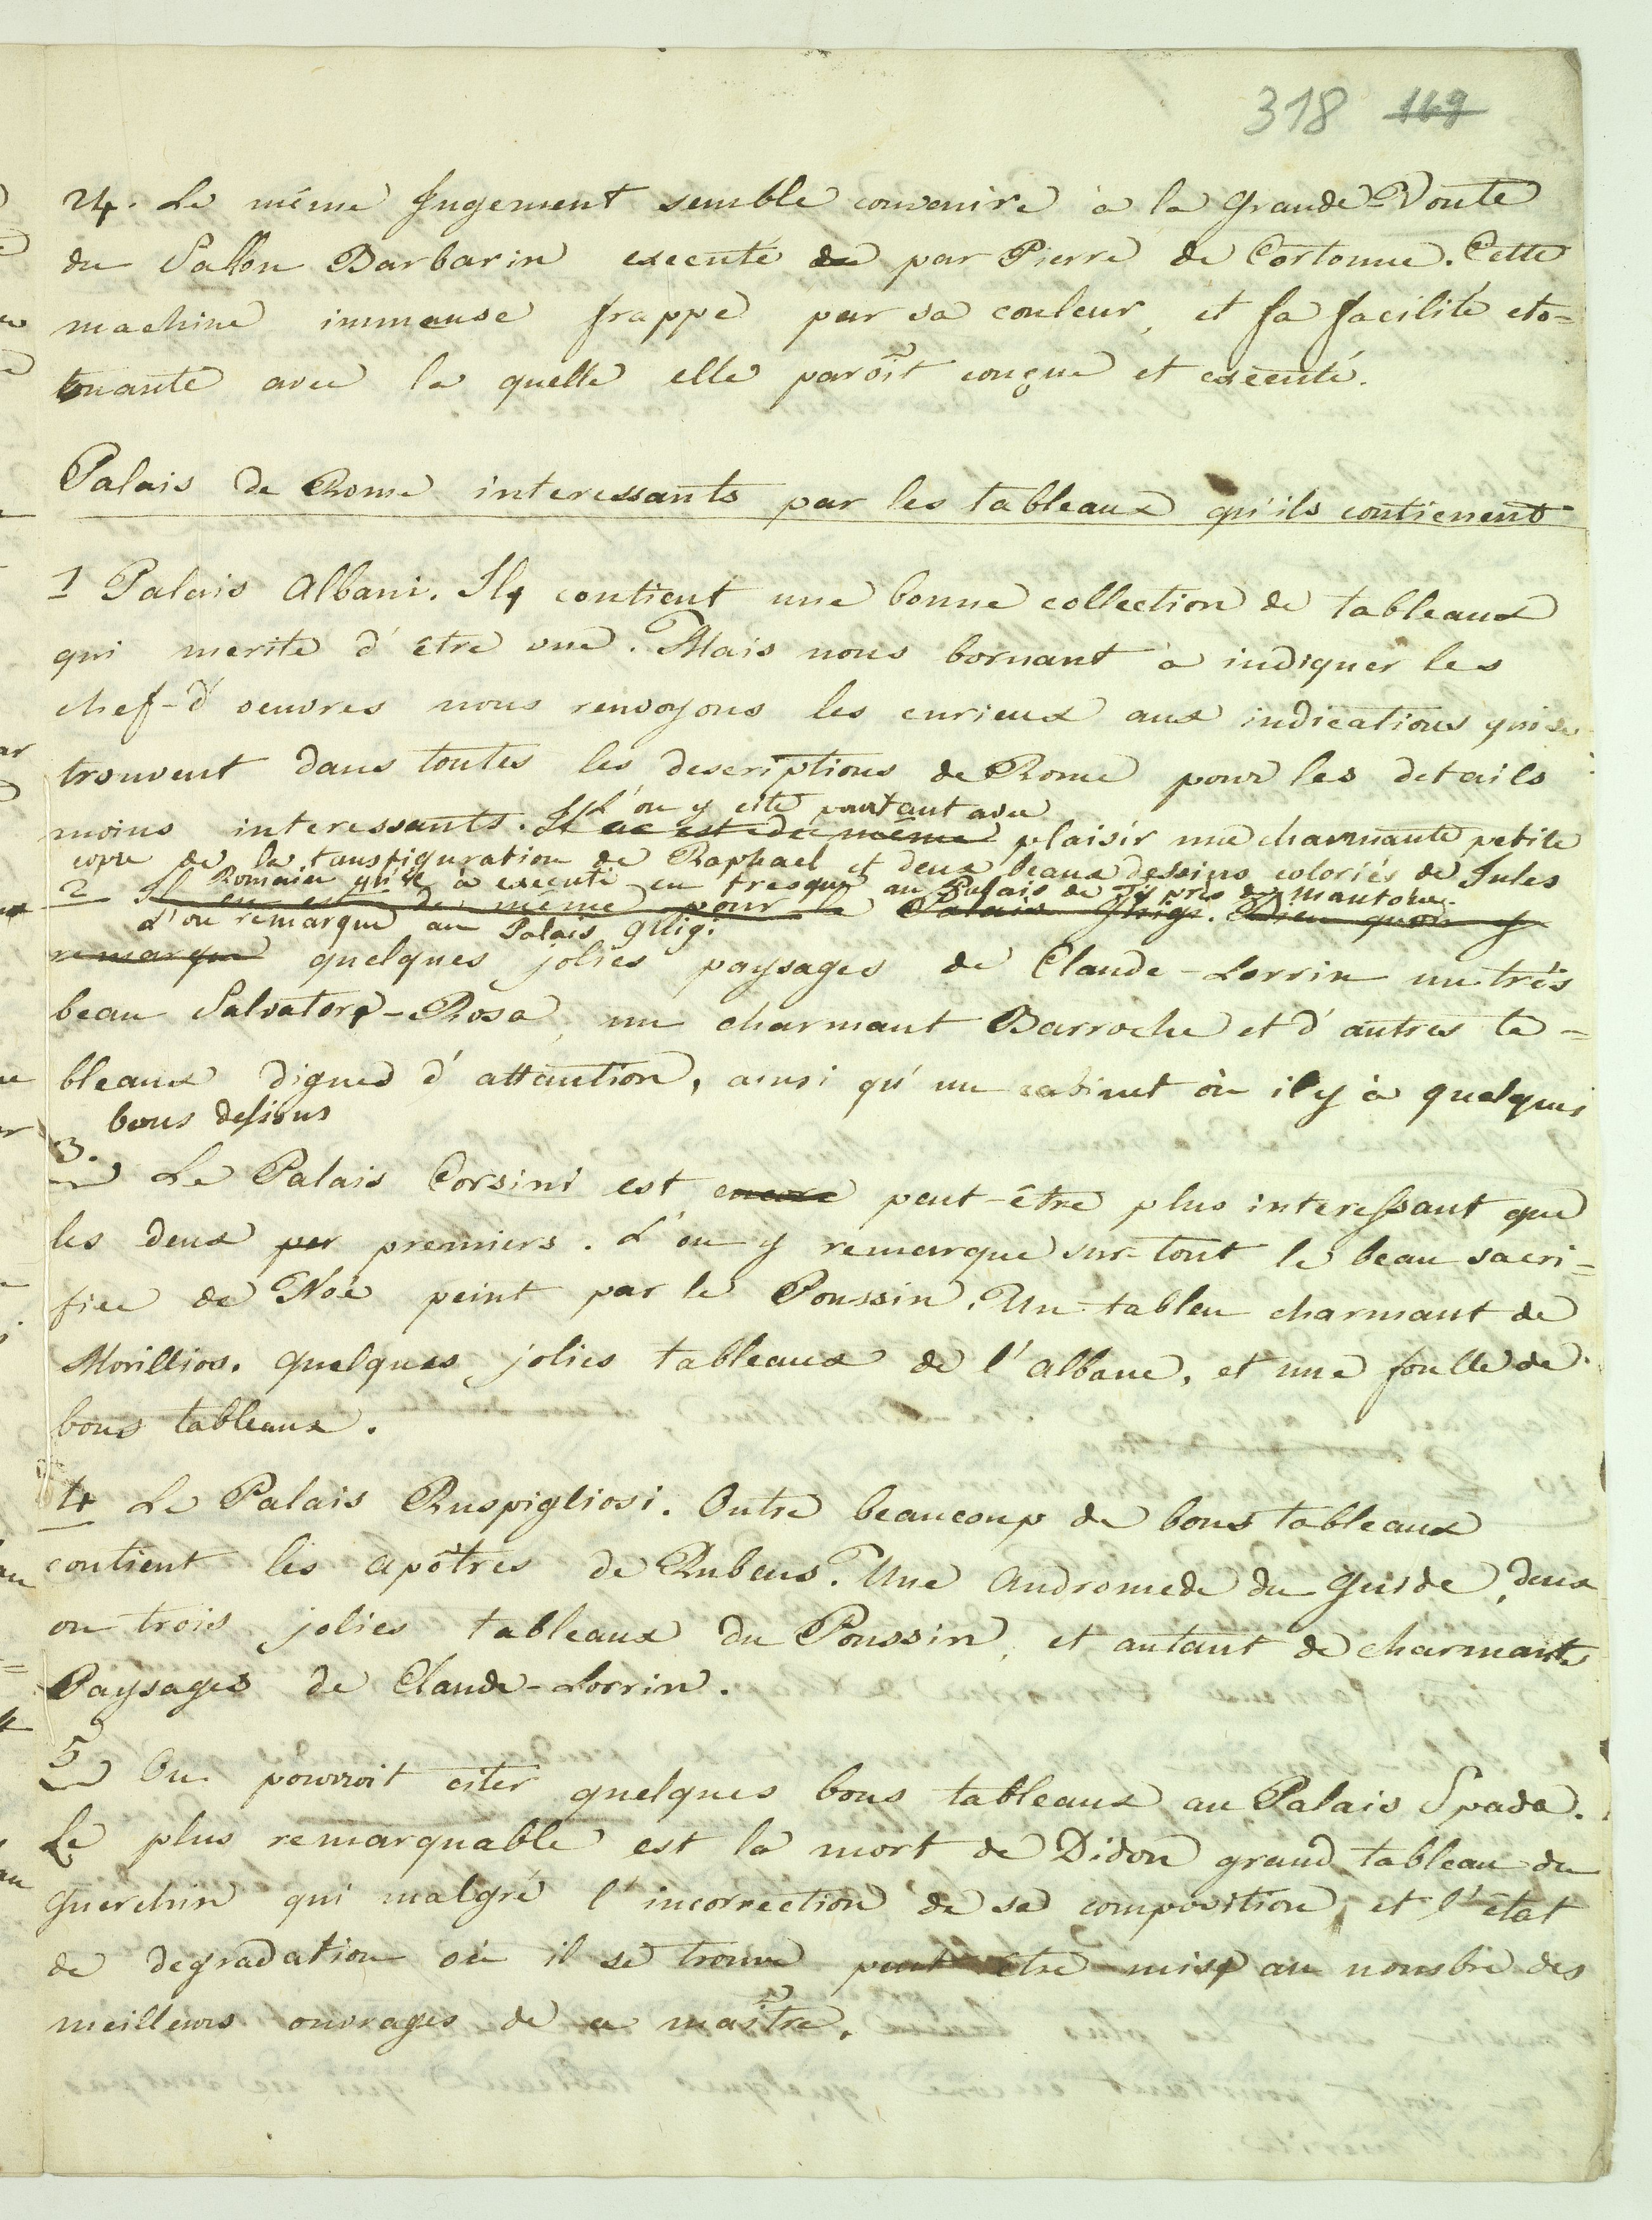 318 169
24. Le même Jugement semble convenire à la Grande-Voute
du Sallon Barbarin execute de par Pierre de Cortonne. Cette
machine immense frappe par sa couleur, et sa facilité eto=
nante avec la quelle elle paroît conçue et executé.
Palais de Rome interessants par les tableaux qu'ils contienent
1 Palais Albani. Il contient une bonne collection de tableaux
qui merite d'être vue. Mais nous bornant à indiquer les
chef-d'oeuvres nous renvoyons les curieux aux indications qui se
trouvent dans toutes les descriptions de Rome pour les details
L'on y cite pourtant avec
moins interessants. Il en est de même plaisir une charmante petite
copie de la tansfiguration de Raphael et deux beaux dessins coloriés de Jules
Romain qu'il à executé en fresque au Palais de T près de Mantoue.
2 Il en est de même pour le Palais Ghigi. Bien qu'on y
L'on remarque au Palais Ghigi
remarque quelques jolies paysages de Claude-Lorrin un très
beau Salvator-Rosa, un charmant Barroche et d'autres ta=
bleaux dignes d'attantion, ainsi qu'un cabinet où il y à quelques
bons dessions
3. Le Palais Corsini est encore peut-être plus interessant que
les deux per premiers. L'on y remarque sur-tout le beau sacri=
fice de Noé peint par le Poussin. Un tableu charmant de
Morillios. quelques jolies tableaux de l'Albane, et une foulle de
bons tableaux.
4 Le Palais Ruspigliosi. Outre beaucoup de bons tableaux
contient les Apôtres de Rubens. Une Andromede du Guide, deux
ou trois jolies tableaux du Poussin, et autant de charmants
Paysages de Claude-Lorrin.
5 On pourroit citer quelques bons tableaux au Palais Spada.
Le plus remarquable est la mort de Didon grand tableau du
Guerchin qui malgré l'incorrection de sa composition, et l'état
de degradation où il se trouve peut être mis au nombre des
meilleurs ouvrages de ce maître.